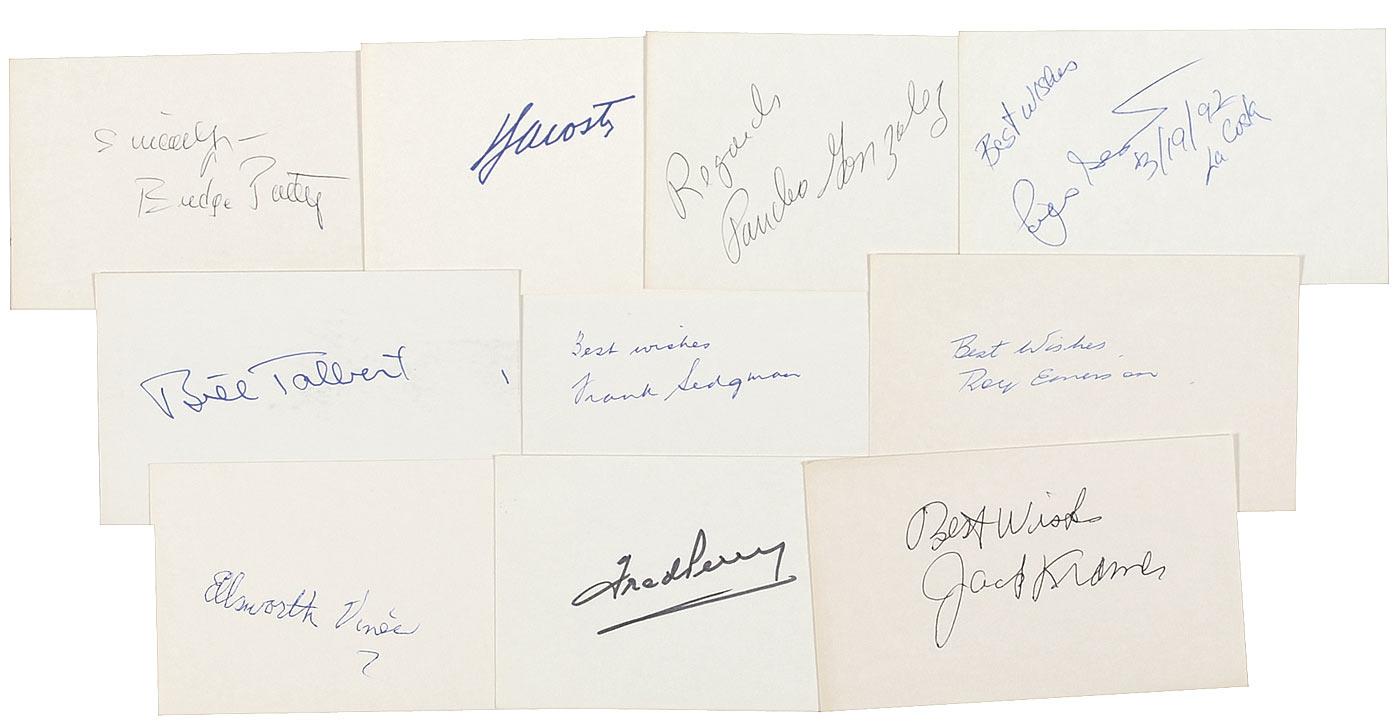 Sincerely –
Budge Patty
Lacoste
Regards
Pancho Gonzalez
Best Wishes
3/19/92
La Costa
Bill Talbert
Best wishes
Frank Sedgman
Best Wishes
Roy Emerson
Ellsworth Vines
Fred Perry
Best Wishes
Jack Kramer